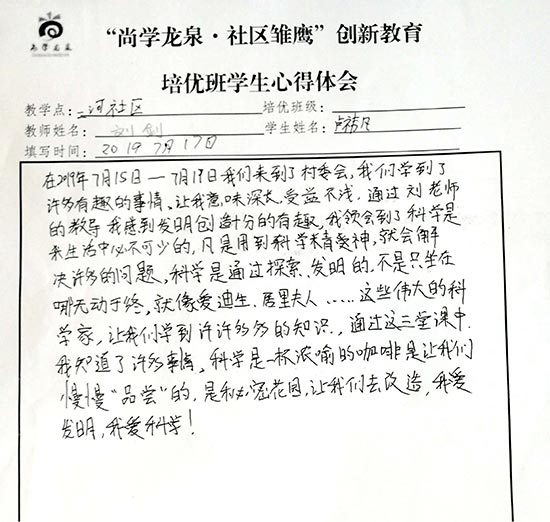 尚学龙泉
“尚学龙泉·社区雏鹰”创新教育
培优班学生心得体会
教学点：三河社区 培优班级：
教师姓名：刘剑 学生姓名：
填写时间：2019 7月17日
在2019年7月15日—7月19日我们来到了村委会,我们学到了
许多有趣的事情、让我意味深长,受益不浅.通过刘老师
的教导我感到发明创造十分的有趣,我领会到了科学是
来生活中必不可少的,凡是用到科学精神,就会解
决许多的问题,科学是通过探索、发明的,不是只坐在
哪无动于终,就像爱迪生.居里夫人……这些伟大的科
学家,让我们学到许许多多的知识.,通过这三堂课中
我知道了许多事情,科学是一杯浓喻的咖啡是让我们
慢慢“品尝”的,是秘密花园,让我们去改造,我爱
发明,我爱科学!